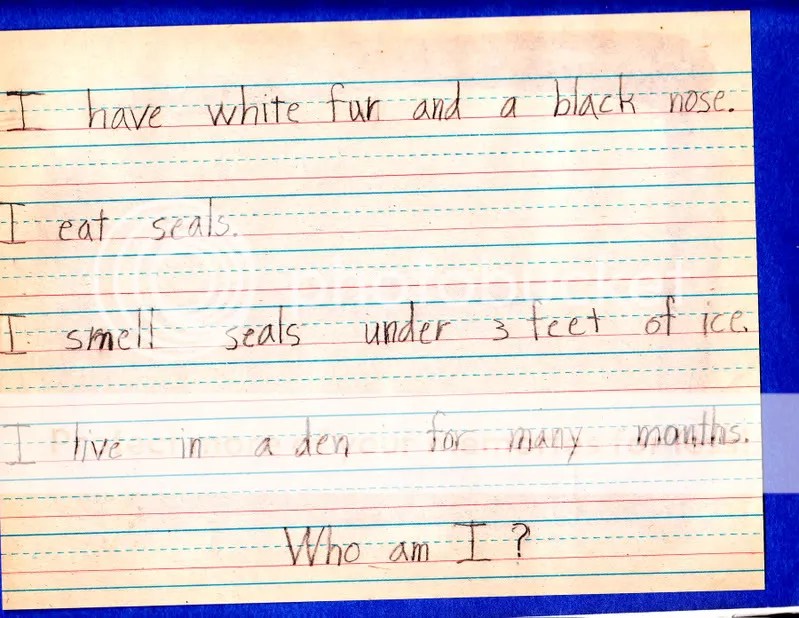 I have white fur and a black nose.
I eat seals.
I smell seals under 3 feet of ice.
I live in a den for many manths.
Who am I?
photobucket